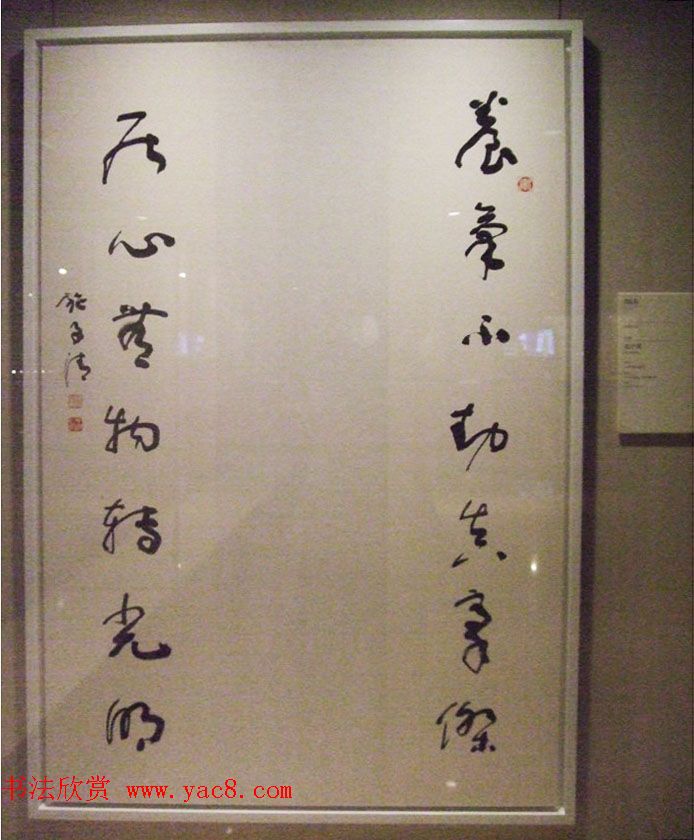 養氣不動真豪傑
居心無物轉光明
施子清
书法欣赏 www.yac8.com